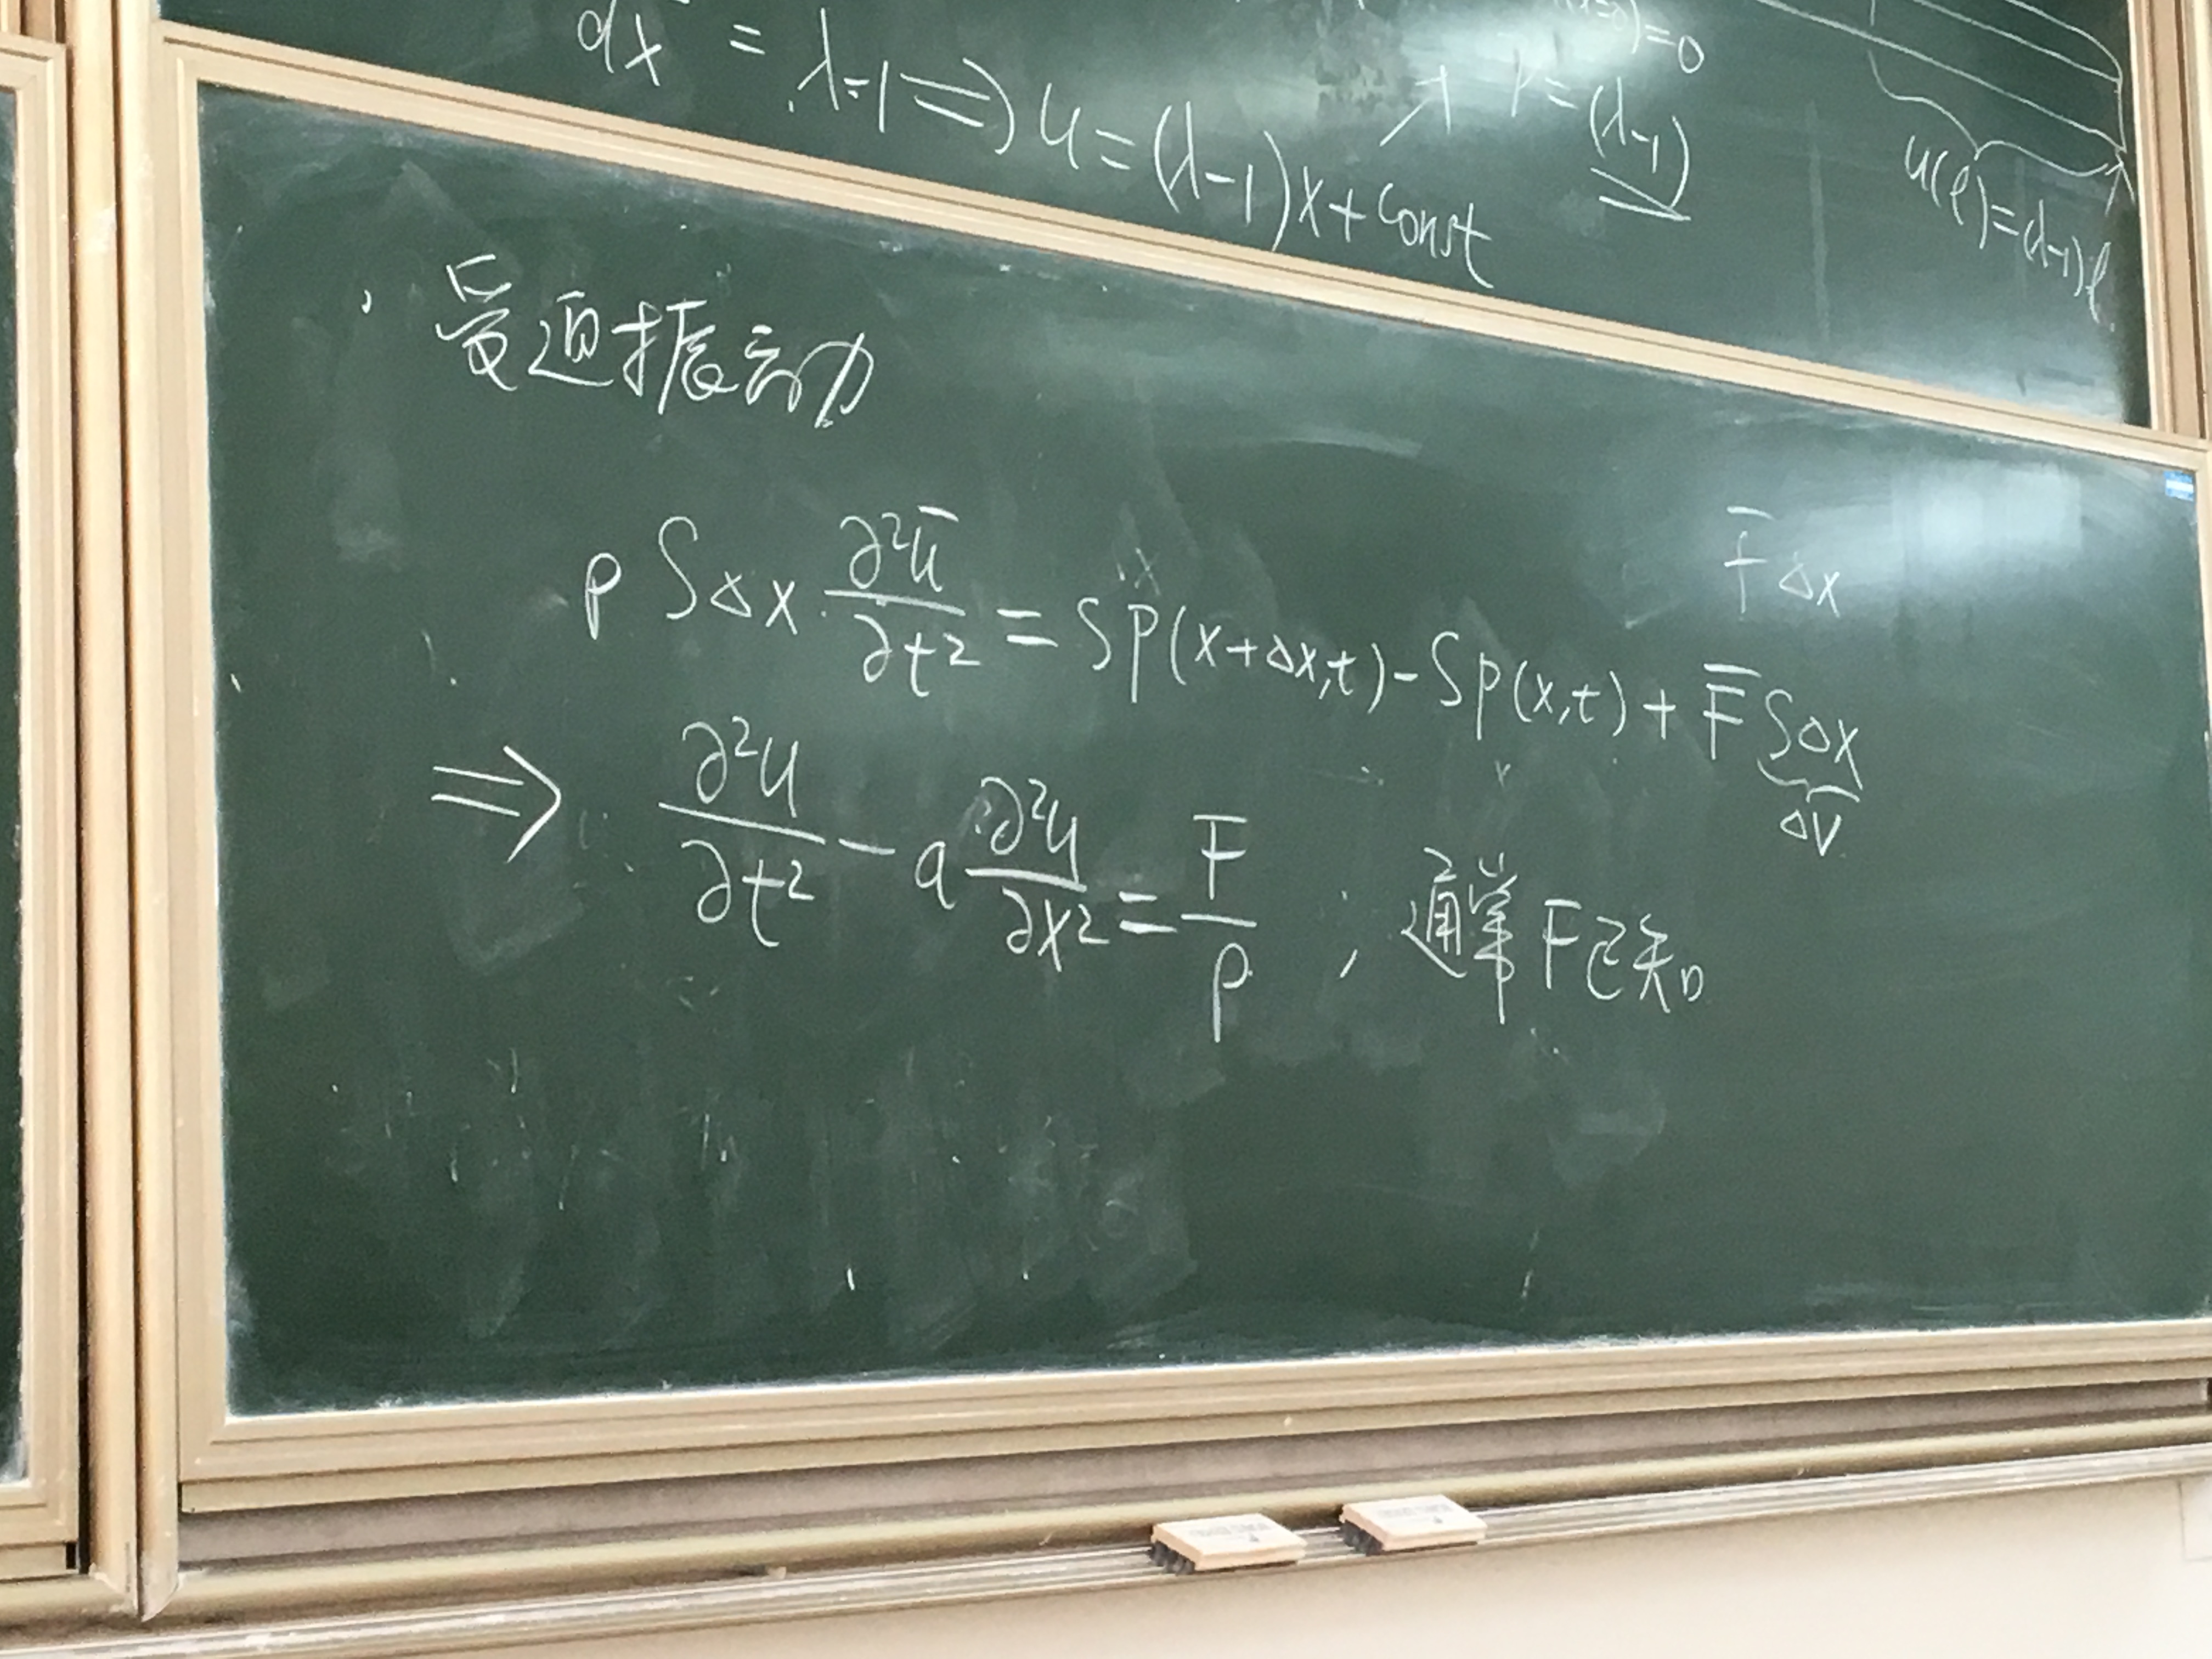 dx = λ-1 ⇒ u = (λ-1)x + Const
(x=0) = 0
(λ-1)
u(l) = (λ-1)l
受迫振动
F̄ Δx
ρ S Δx ∂²ū/∂t² = SP(x+Δx,t) - SP(x,t) + F̄ SΔx
ΔV
⇒ ∂²u/∂t² - a ∂²u/∂x² = F/ρ ; 通常F已知